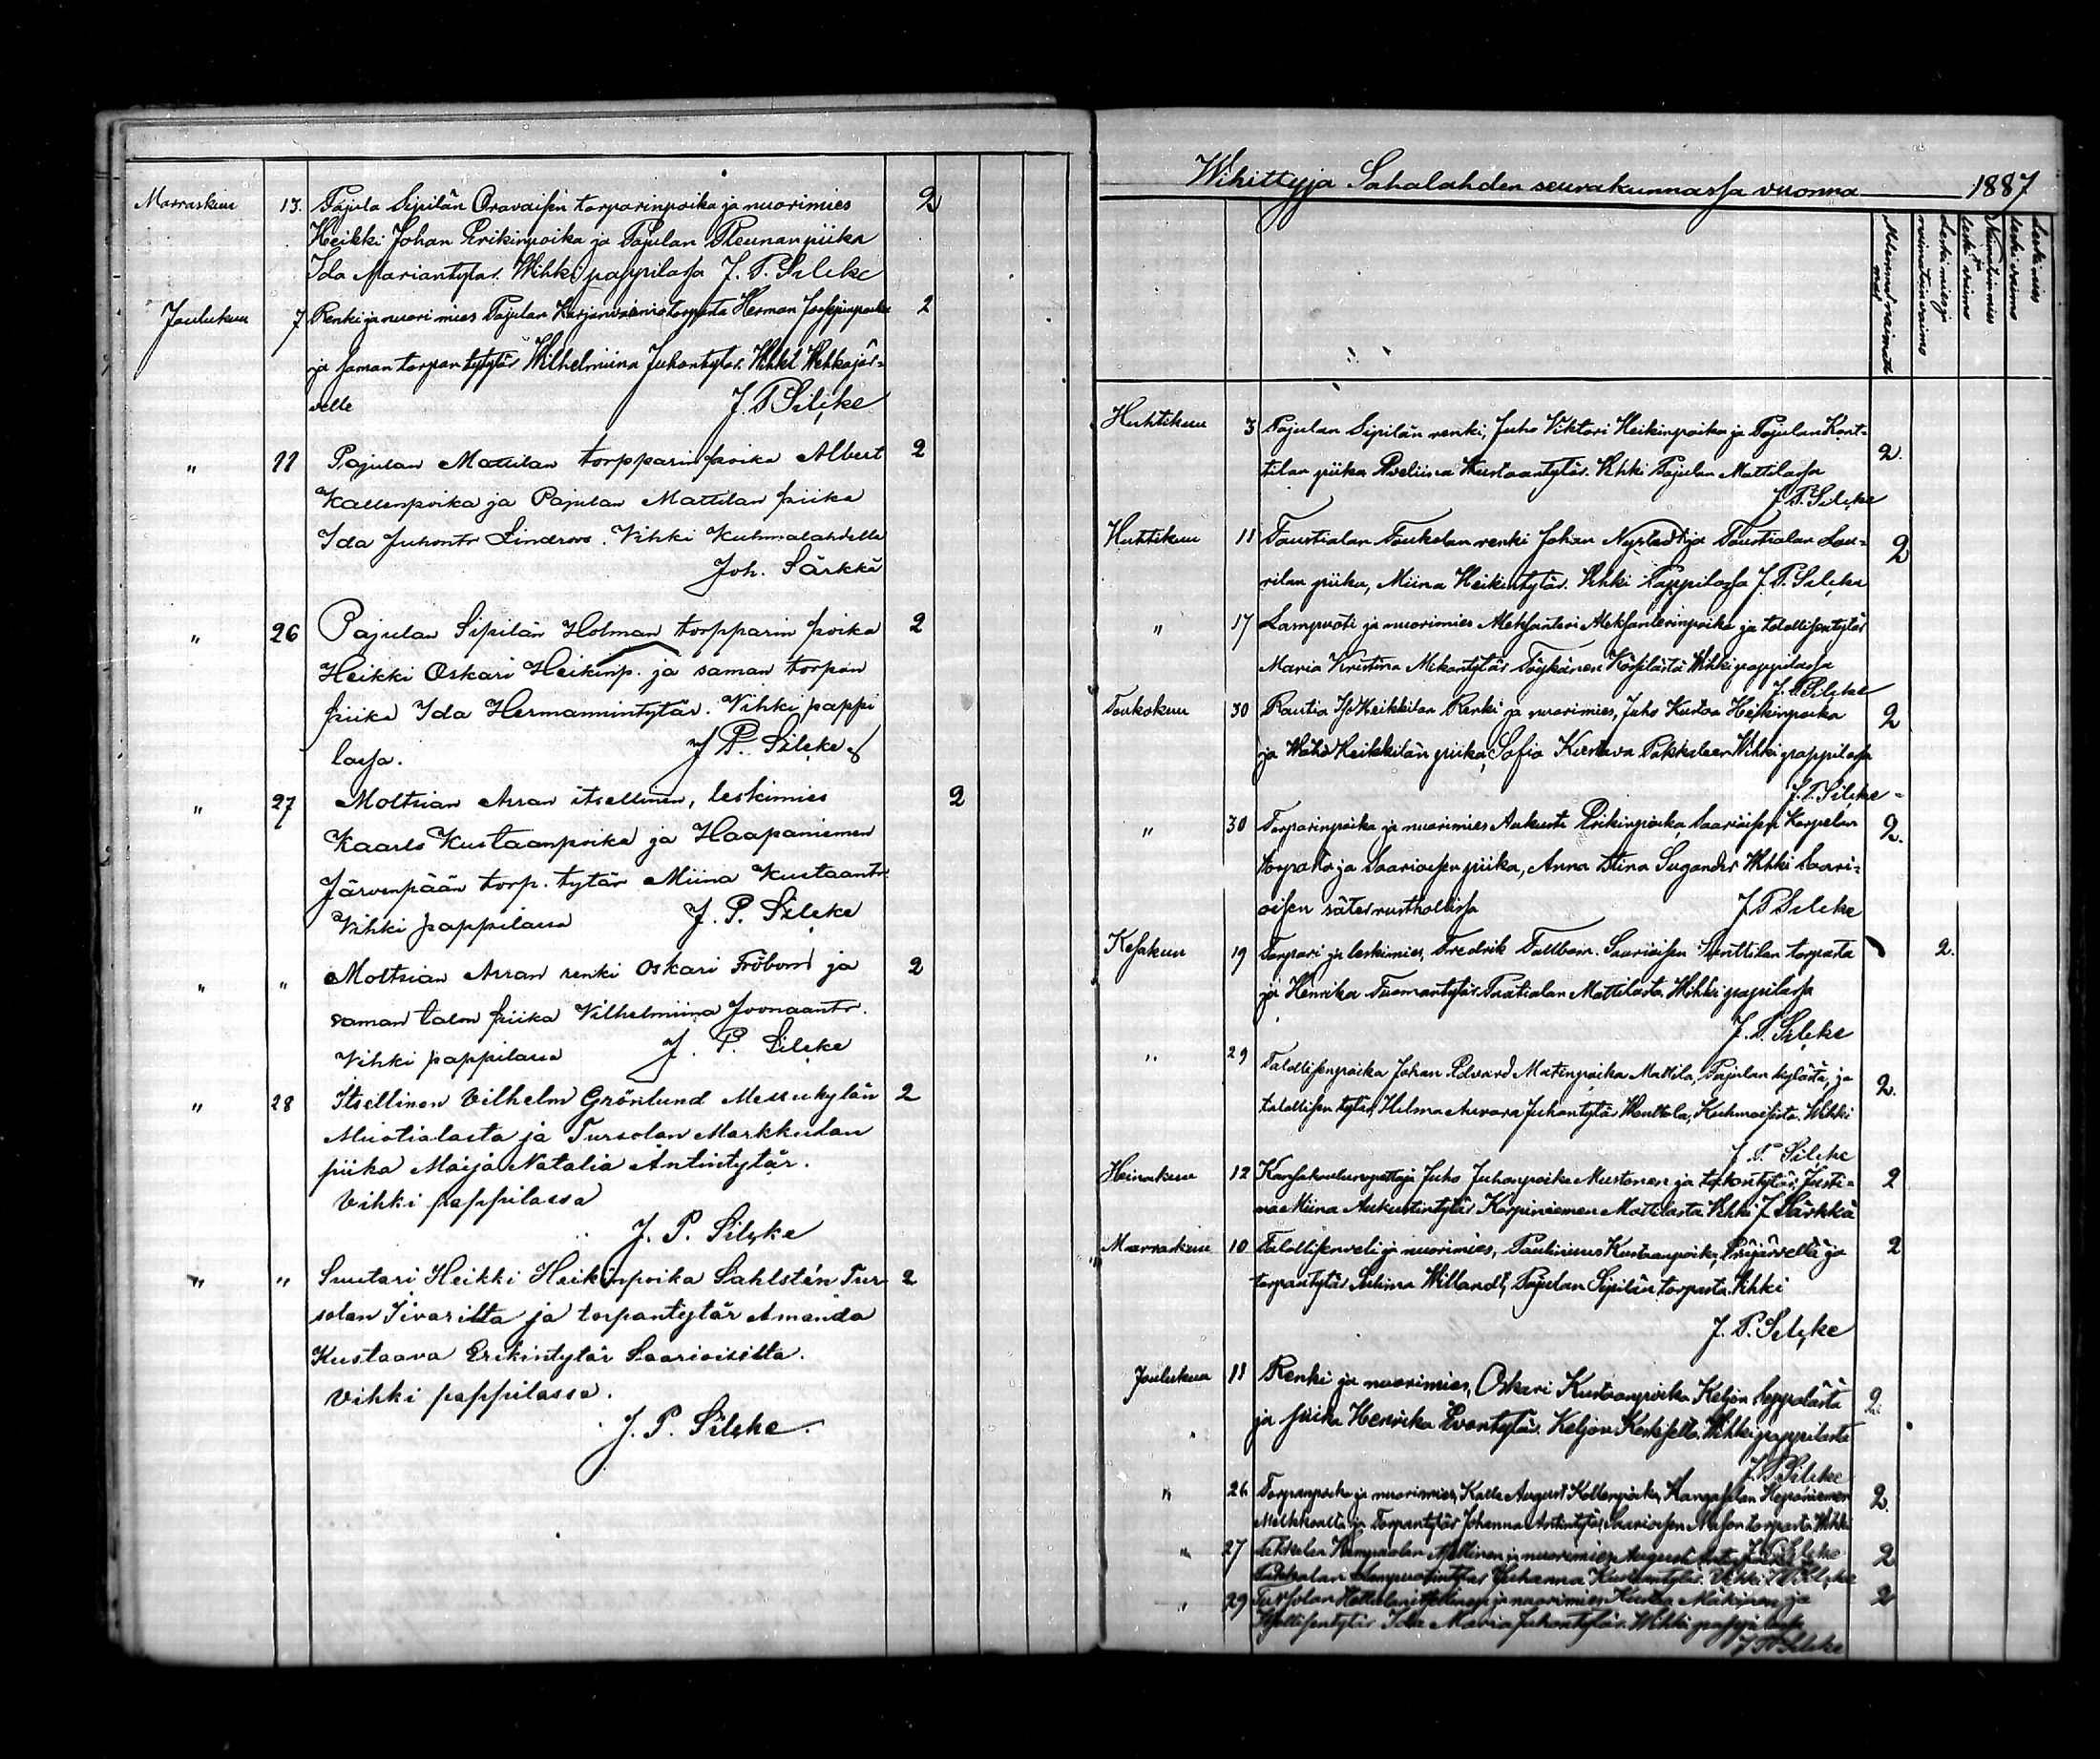 Marraskuu 13. Pajula Sipilän Oravaisen torparinpoika ja nuorimies 2
Heikki Johan Erikinpoika ja Pajulan piika
Ida Mariantytär. Wihki pappilassa J. P. Silcke
Joulukuu 7 Renki ja nuori mies Pajulan torpasta Herman Josefinpoika 2
ja saman torpan tytär Wilhelmiina Juhontytär. Wihki Wehkajär-
velle J. P. Silcke
" 11 Pajulan Mattilan torpparin poika Albert 2
Kallenpoika ja Pajulan Mattilan piika
Ida Juhontr Lindroos. Vihki Kuhmalahdella
Joh. Särkkä
" 26 Pajulan Sipilän Holman torpparin poika 2
Heikki Oskari Heikinp. ja saman torpan
piika Ida Hermannintytär. Vihki pappi
lassa. J. P. Silcke
" 27 Moltsian Arran itsellinen, leskimies 2
Kaarlo Kustaanpoika ja Haapaniemen
Järvenpään torp. tytär Miina Kustaantr.
Vihki pappilassa J. P. Silcke
" " Moltsian Arran renki Oskari Fröbom ja 2
saman talon piika Vilhelmiina Joonaantr.
Vihki pappilassa J. P. Silcke
" 28 Itsellinen Vilhelm Grönlund Messukylän 2
Muotialasta ja Tursolan Markkulan
piika Maija Natalia Antintytär.
Vihki pappilassa
J. P. Silcke
" " Suutari Heikki Heikinpoika Sahlstén Tur 2
solan Iivarilta ja torpantytär Amanda
Kustaava Erikintytär Saarioisilta.
Vihki pappilassa.
J. P. Silcke.
Wihittyjä Sahalahden seurakunnassa vuonna 1887
Molemmat naimatto
mat
Leskimies ja
naimatoin vaimo
Naimatoin mies
ja
leski vaimo
Leski mies
leski vaimo
Huhtikuu 3 Pajulan Sipilän renki, Juho Viktori Heikinpoika ja Pajulan Kont-
tilan piika Eveliina Kustaantytär. Vihki Pajulan Mattilassa 2.
J. P. Silcke
Huhtikuu 11 Taustialan Toukolan renki Johan Nystedt ja Taustialan Lau- 2
rilan piika, Miina Heikintytär. Vihki Pappilassa J. P. Silcke
" 17 Lampuoti ja nuorimies Aleksanteri Aleksanterinpoika ja talollisentytär
Maria Kristina Mikontytär Wihki pappilassa
J. P. Silcke
Toukokuu 30 Rautia Iso Heikkilän Renki ja nuorimies, Juho Kustaa Heikinpoika 2
ja Wähä Heikkilän piika, Sofia Kustava Wihki pappilassa
J. P. Silcke
" 30 Torparinpoika ja nuorimies Aukusti Erikinpoika Saarioisen Karpelan 2.
torpasta ja Saarioisen piika, Anna Stina Sugander Vihki Saari-
oisen säterirusthollissa J. P. Silcke
Kesäkuu 19 Torpari ja leskimies, Fredrik Tallbom. Saarioisen torpasta 2.
ja Henrika Tuomantytär Mattilasta. Wihki pappilassa
J. P. Silcke
" 29 Talollisenpoika Johan Edvard Matinpoika Mattila, Pajulan kylästä, ja 2.
talollisen tytär, Hilma Aurora Juhontytär Kuhmoisista. Wihki
J. P. Silcke
Heinäkuu 12 Kansakoulunopettaja Juho Juhonpoika Mustonen ja Justi- 2
na Miina Aukustintytär Mattilasta Vihki J. Särkkä
Marraskuu 10 Talollisenveli ja nuorimies, Paulinus Kustaanpoika, ja 2
torpantytär Selima Willandt, Pajulan Sipilän torpasta. Vihki
J. P. Silcke
Joulukuu 11 Renki ja nuorimies, Oskari Kustaanpoika Keljon Seppälästä 2.
ja piika Henrika Evantytär. Keljon Wihki pappilasta
J. P. Silcke
" 26 Torpanpoika ja nuorimies, Kalle August Kallenpoika, Kangasalan 2.
ja Torpantytär Johanna Antintytär, Saarioisen torpasta. Vihki
J. P. Silcke
" 27 ja nuorimies August 2
Johanna Kustaantytär. Vihki J. P. Silcke
" 29 Tursolan ja nuorimies Kustaa Mäkinen ja 2
Itsellisentytär Ida Maria Juhontytär. Wihki
J. P. Silcke